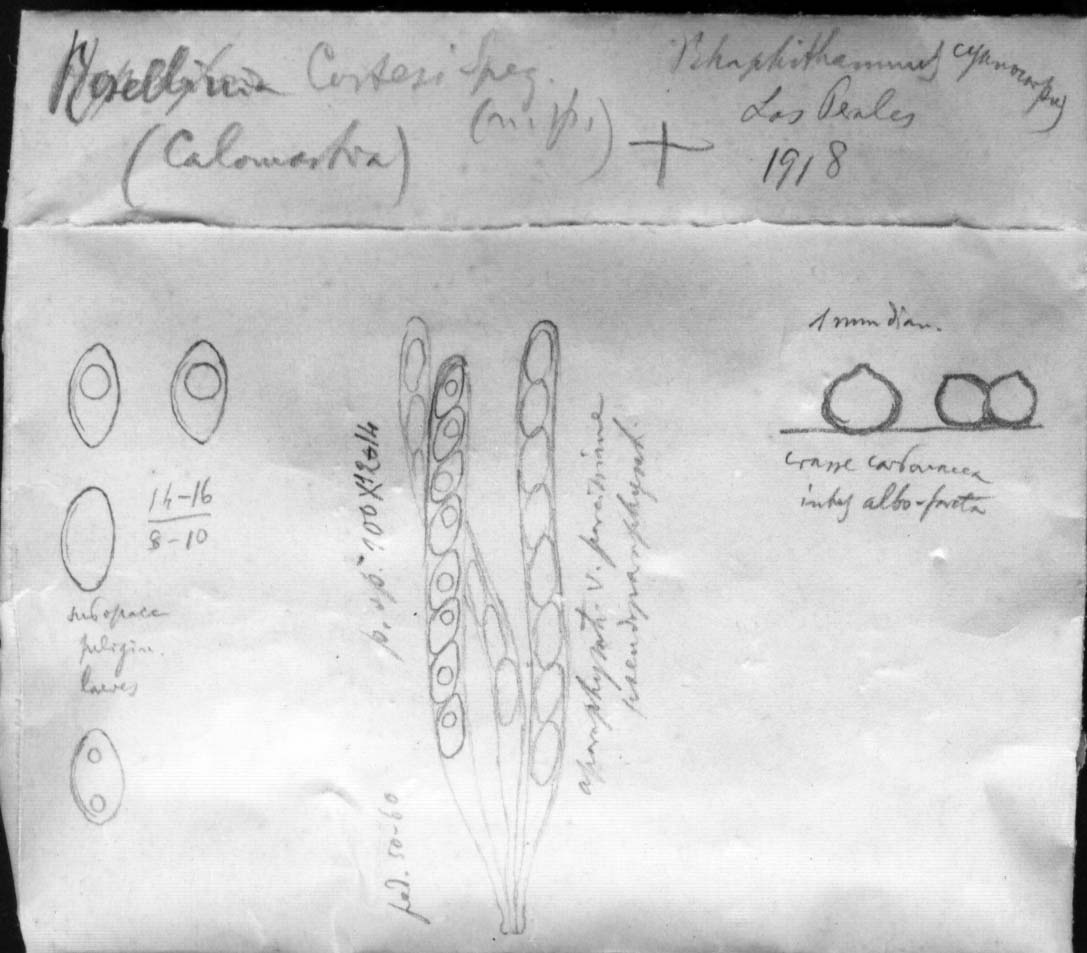 Rosellinia Cortesi Speg.
(n. sp.)
(Calomastia)
+
Rhaphithamnus cyanocarpus
Los Perales
1918
1 mm diam.
crasse carbonacea
intus albo-farcta
14-16
8-10
subopace
fuligin.
laeves
p. sp. 100 X 12-14
aparaphysat. v. parcissime
pseudoparaphysat.
ped. 50-60